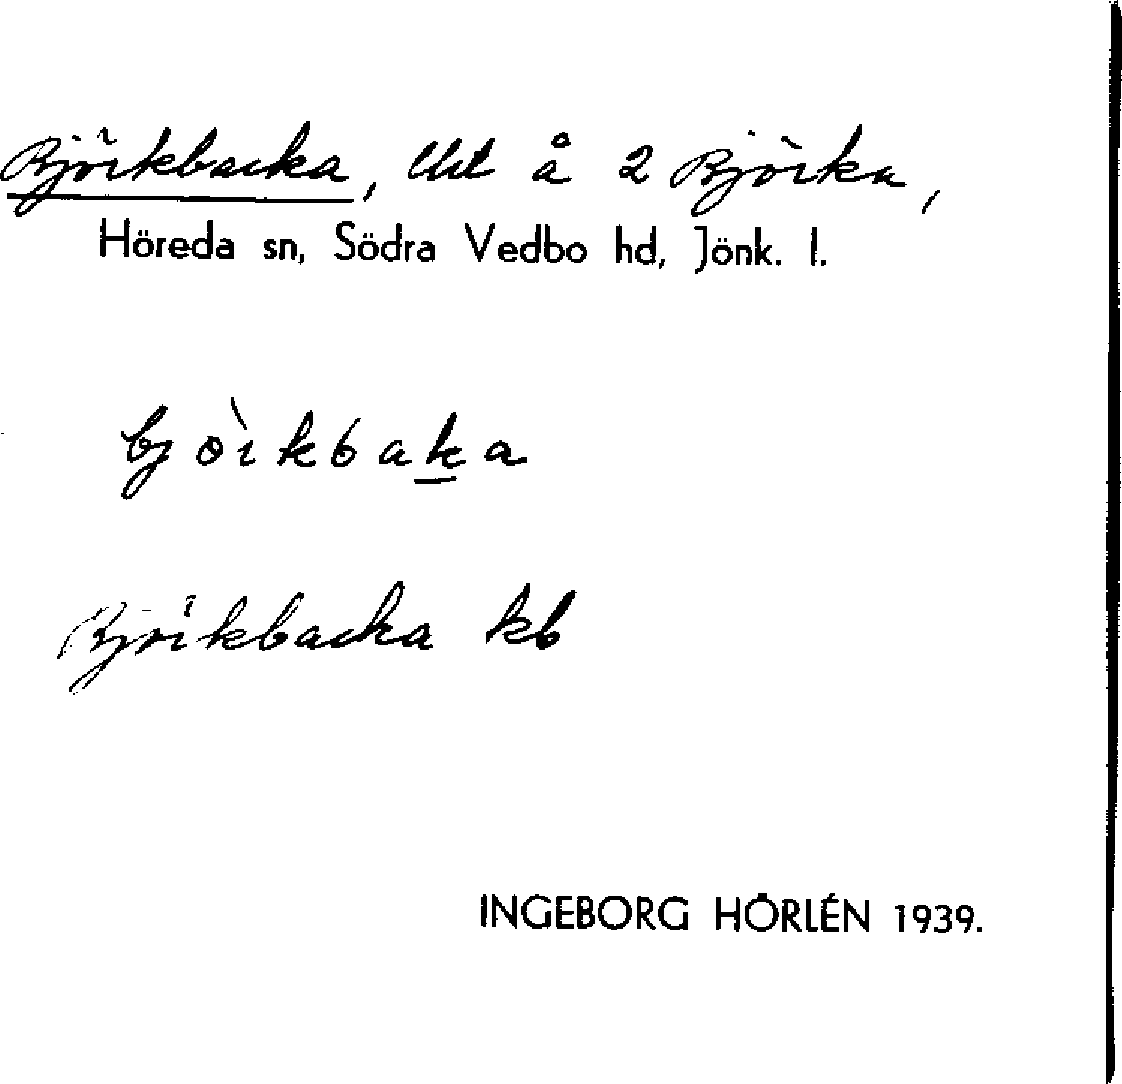 Björkbacka, Uht å 2 Björka,
Höreda sn, Södra Vedbo hd, Jönk. l.
bjö̀rkbaka
Björkbacka kb
INGEBORG HÖRLÉN 1939.